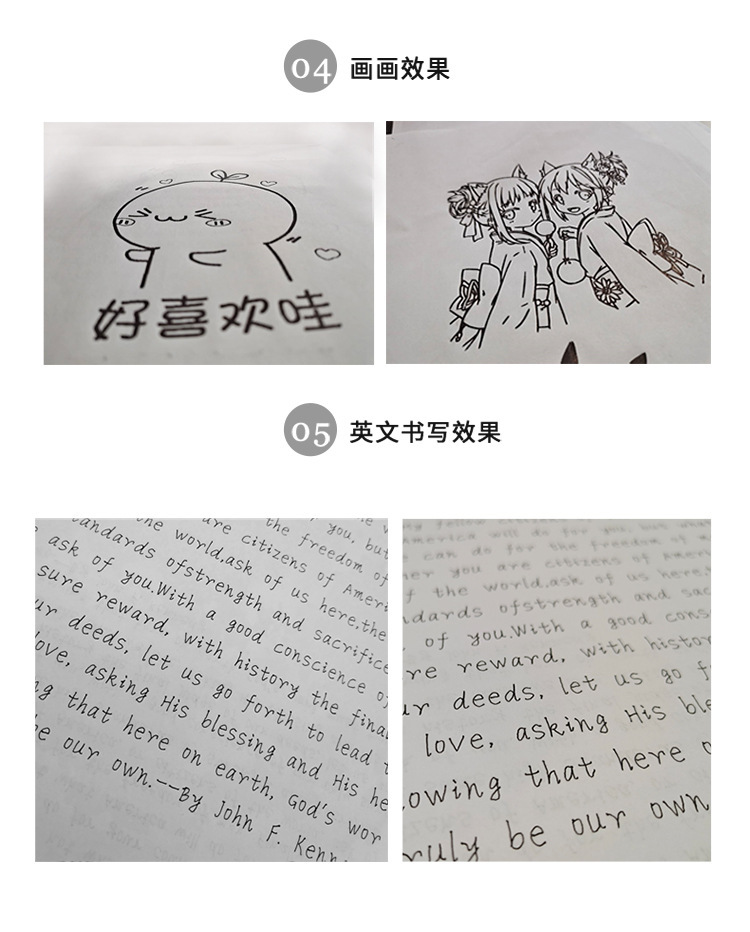 04 画画效果
好喜欢哇
05 英文书写效果
you, but
the freedom of
are citizens of Ameri
the world,ask of us here,the
andards ofstrength and sacrifice
ask of you.With a good conscience o
sure reward, with history the final
ur deeds, let us go forth to lead
love, asking His blessing and His he
ng that here on earth, God's wor
be our own.--By John F. Kenn
America will do for you, but what
can do for the freedom of
her you are citizens of Ameri
f the world,ask of us here,
ndards ofstrength and sac
of you.With a good cons
re reward, with histor
ur deeds, let us go f
love, asking His ble
owing that here o
ruly be our own